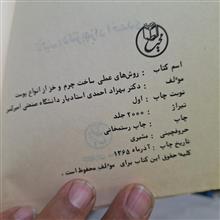 اسم کتاب : روش‌های عملی ساخت چرم و خز از انواع پوست
مؤلف : دکتر بهزاد احمدی استادیار دانشگاه صنعتی امیرکبیر
نوبت چاپ : اول
تیراژ : ۲۰۰۰ جلد
چاپ : چاپ رستمخانی
حروفچینی : مشیری
تاریخ چاپ : آذرماه ۱۳۶۵
کلیهٔ حقوق این کتاب برای مؤلف محفوظ است .